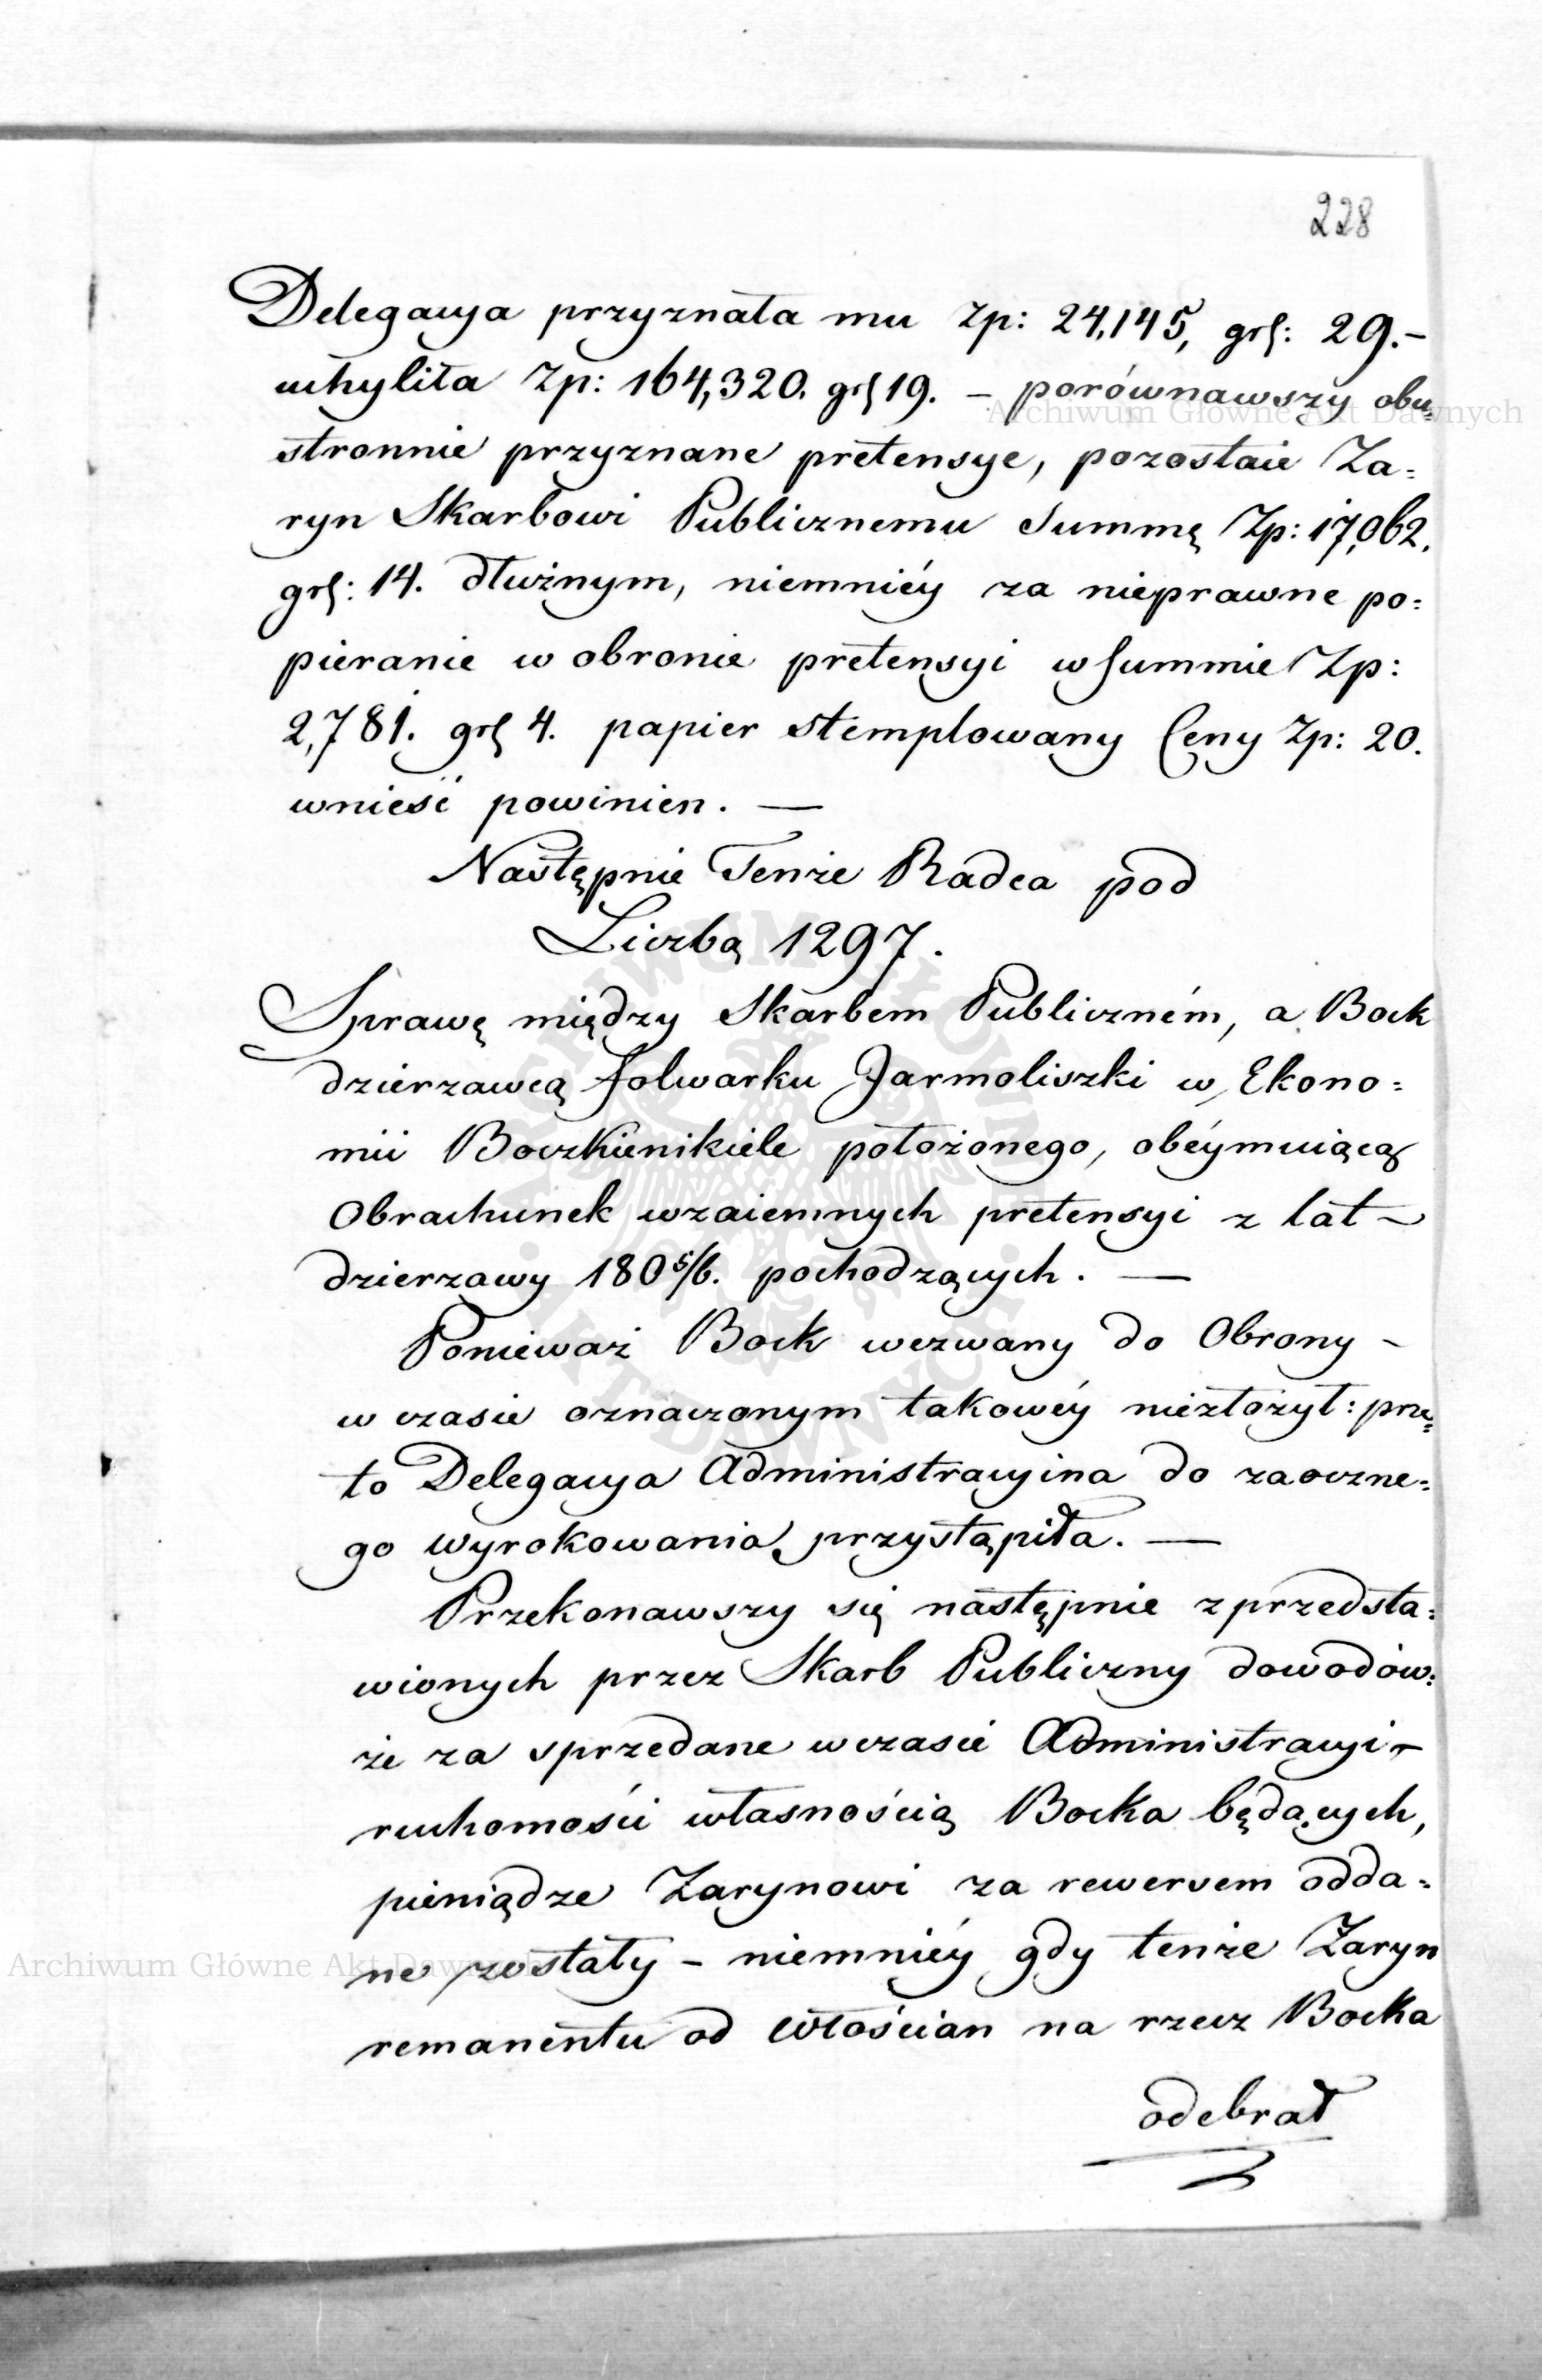 228
Delegacya przyznała mu Zp: 24,145, grſ: 29.–
uchyliła Zp: 164,320. grſ 19. – porównawszy obu=
stronnie przyznane pretensye, pozostaie Za=
ryn Skarbowi Publicznemu Summę Zp: 17,062.
grſ: 14. dłużnym, niemniéy za nieprawne po=
pieranie w obronie pretensyi w summie Zp:
2,781. grſ 4. papier stemplowany Ceny Zp: 20.
wnieść powinien. —
Następnie Tenże Radca pod
Liczbą 1297.
Sprawę między Skarbem Publiczném, a Bock
dzierzawcą folwarku Jarmoliszki w Ekono=
mii Boczkienikiele położonego, obéymuiącą
Obrachunek wzaiemnych pretensyi z lat –
dzierzawy 180 5/6. pochodzących. —
Ponieważ Bock wezwany do Obrony –
w czasie oznaczonym takowéy niezłożył: prze=
to Delegacya Administracyina do zaoczne=
go wyrokowania przystąpiła. —
Przekonawszy się następnie z przedsta=
wionych przez Skarb Publiczny dowodów:
że za sprzedane w czasie Administracyi –
ruchomości własnością Bocka będących,
pieniądze Zarynowi za rewersem odda=
ne zostały – niemniéy gdy tenże Zaryn
remanentu od Włościan na rzecz Bocka
odebrał
Archiwum Główne Akt Dawnych
Archiwum Główne Akt Dawnych
ARCHIWUM GŁÓWNE AKT DAWNYCH